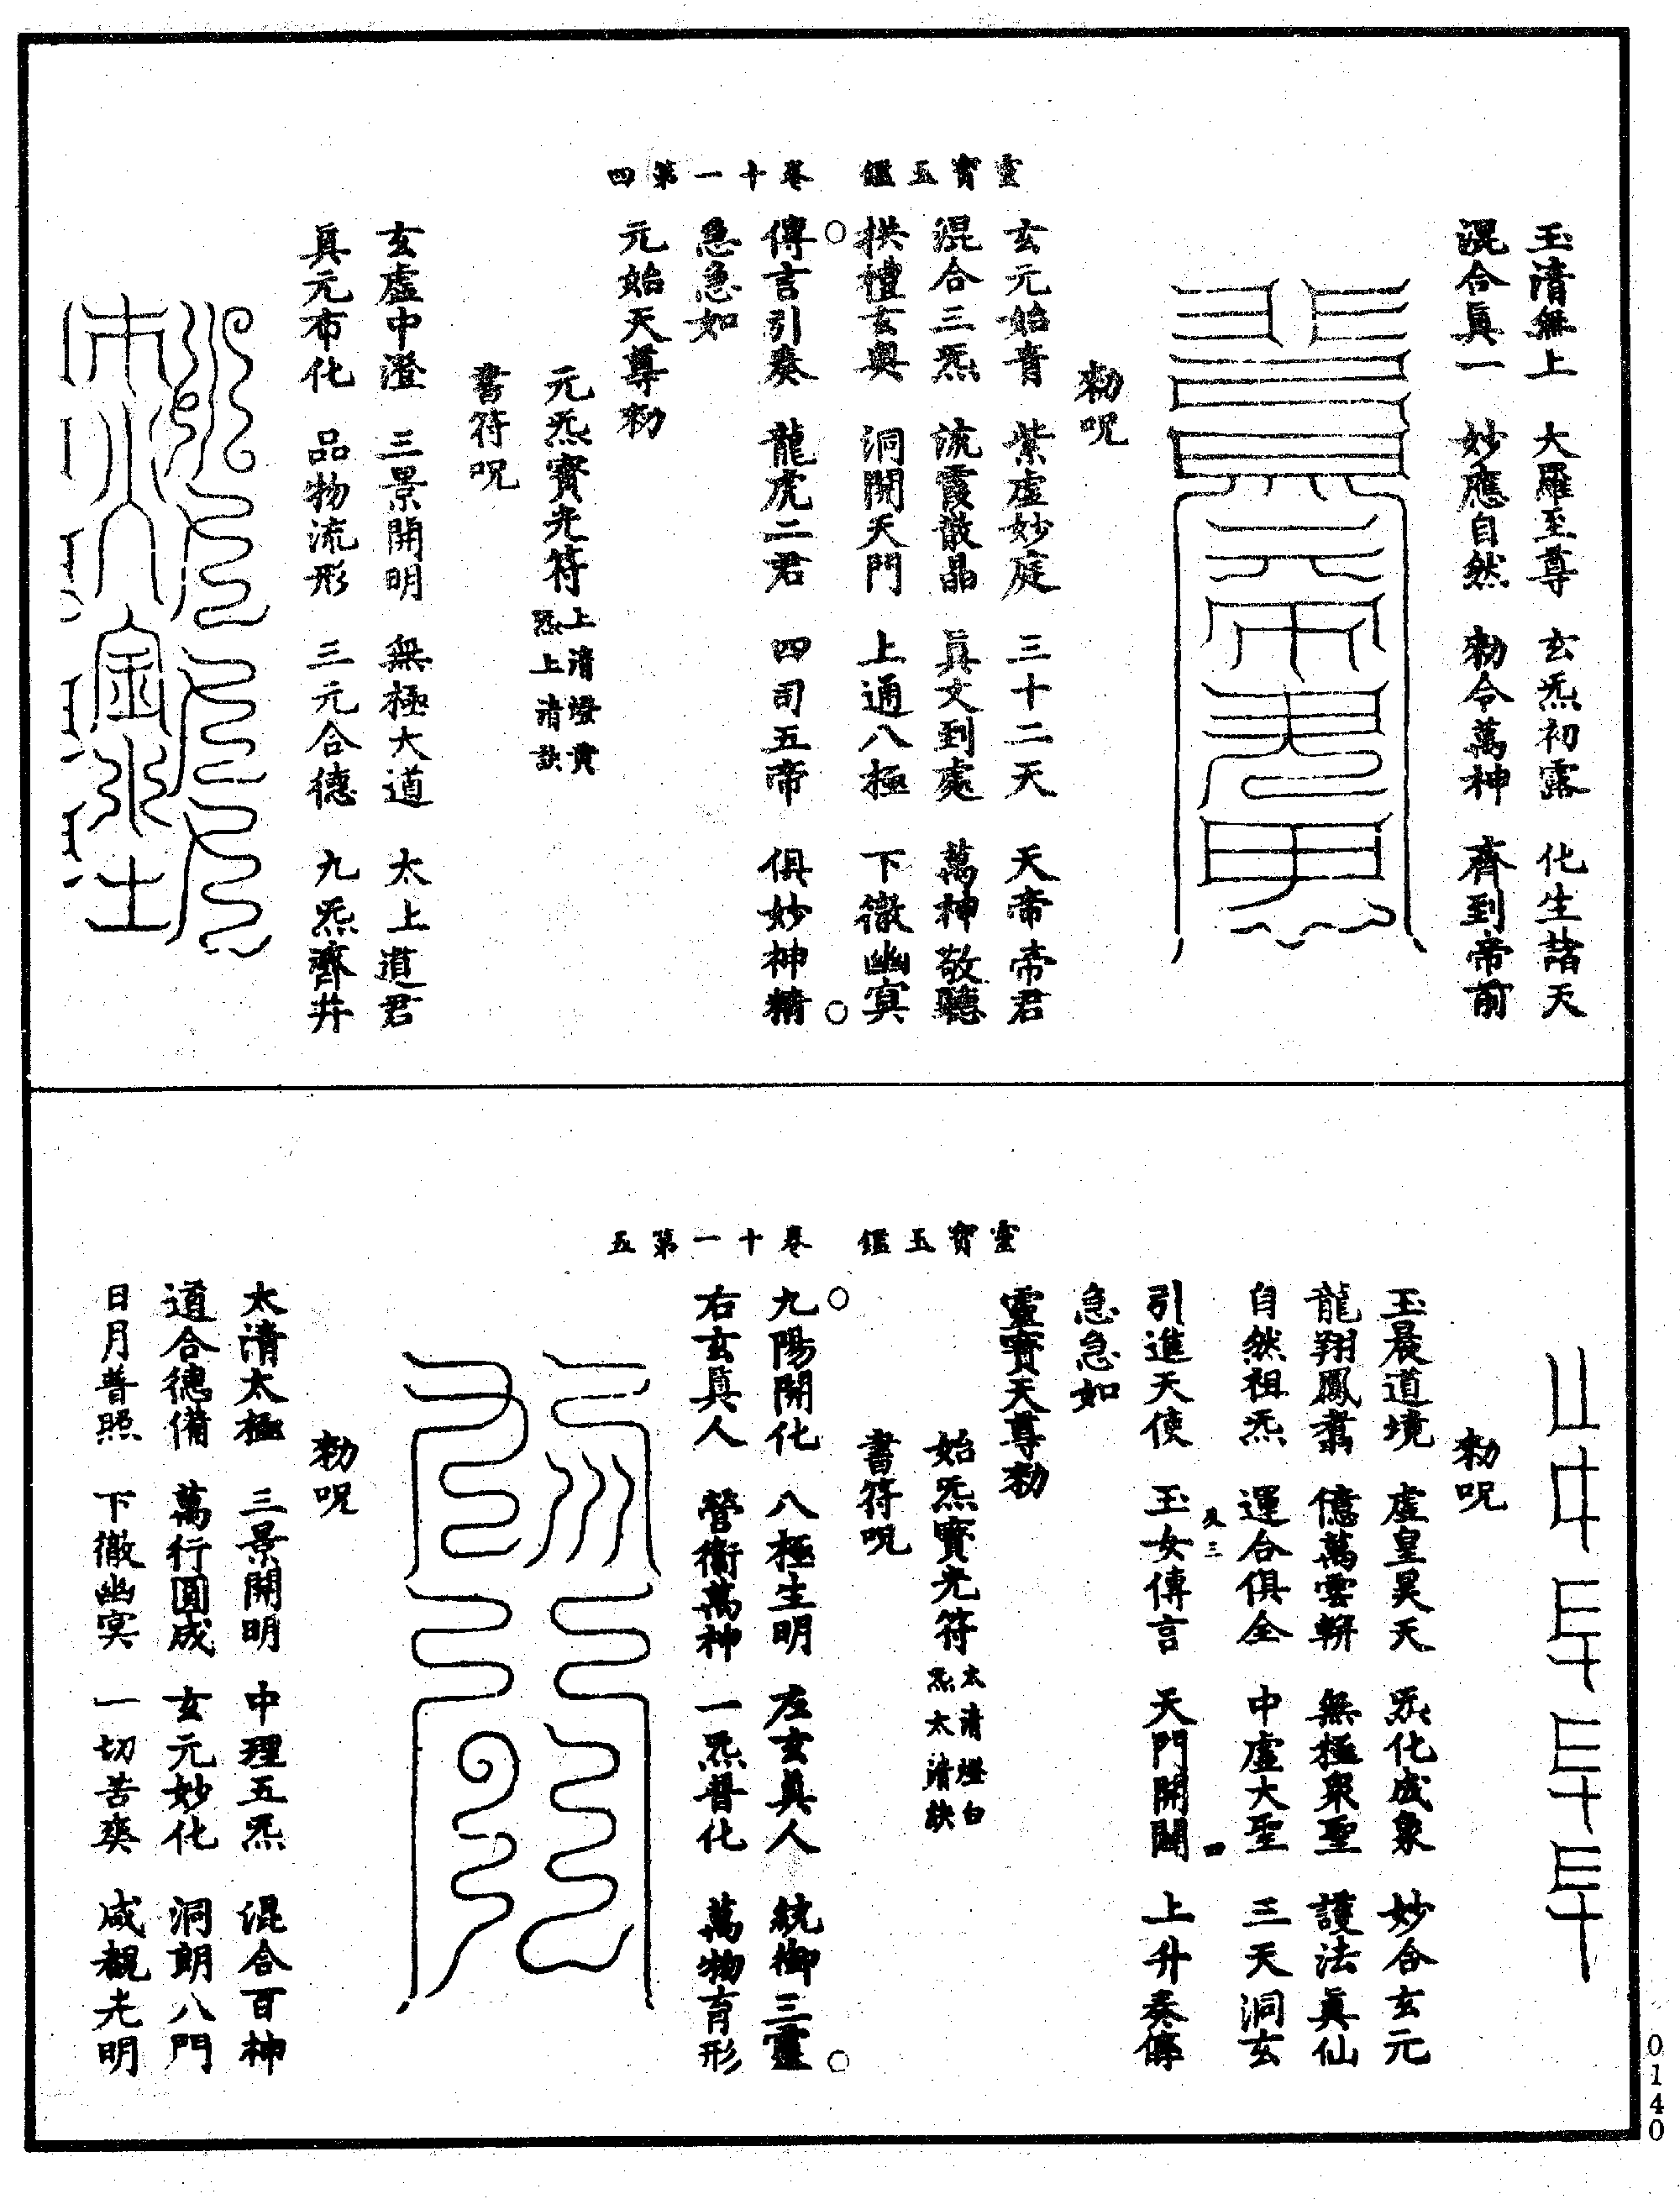 玉清無上　大羅至尊　玄炁初露　化生諸天
混合眞一　妙應自然　勑令萬神　齊到帝前
勑呪
玄元始音　紫虛妙庭　三十二天　天帝帝君
混合三炁　流霞散晶　眞文到處　萬神敬聽
拱禮玄輿　洞開天門　上通八極　下徹幽冥
靈寶玉鑑　卷十一第四
傳言引奏　龍虎二君　四司五帝　俱妙神精
急急如
元始天尊勑
元炁寶光符上清燈黃炁上清訣
書符呪
玄虛中澄　三景開明　無極大道　太上道君
眞元布化　品物流形　三元合德　九炁齊并
勑呪
玉晨道境　虛皇昊天　炁化成象　妙合玄元
龍翔鳳翥　億萬雲軿　無極衆聖　護法眞仙
自然祖炁　運合俱全　中虛大聖　三天洞玄
及三　四
引進天使　玉女傳言　天門開闢　上升奏傳
急急如
靈寶天尊勑
始炁寶光符太清燈白炁太清訣
書符呪
靈寶玉鑑　卷十一第五
九陽開化　八極生明　左玄眞人　統御三靈
右玄眞人　營衛萬神　一炁普化　萬物育形
勑呪
太清太極　三景開明　中理五炁　混合百神
道合德備　萬行圓成　玄元妙化　洞朗八門
日月普照　下徹幽冥　一切苦爽　咸覩光明
0140